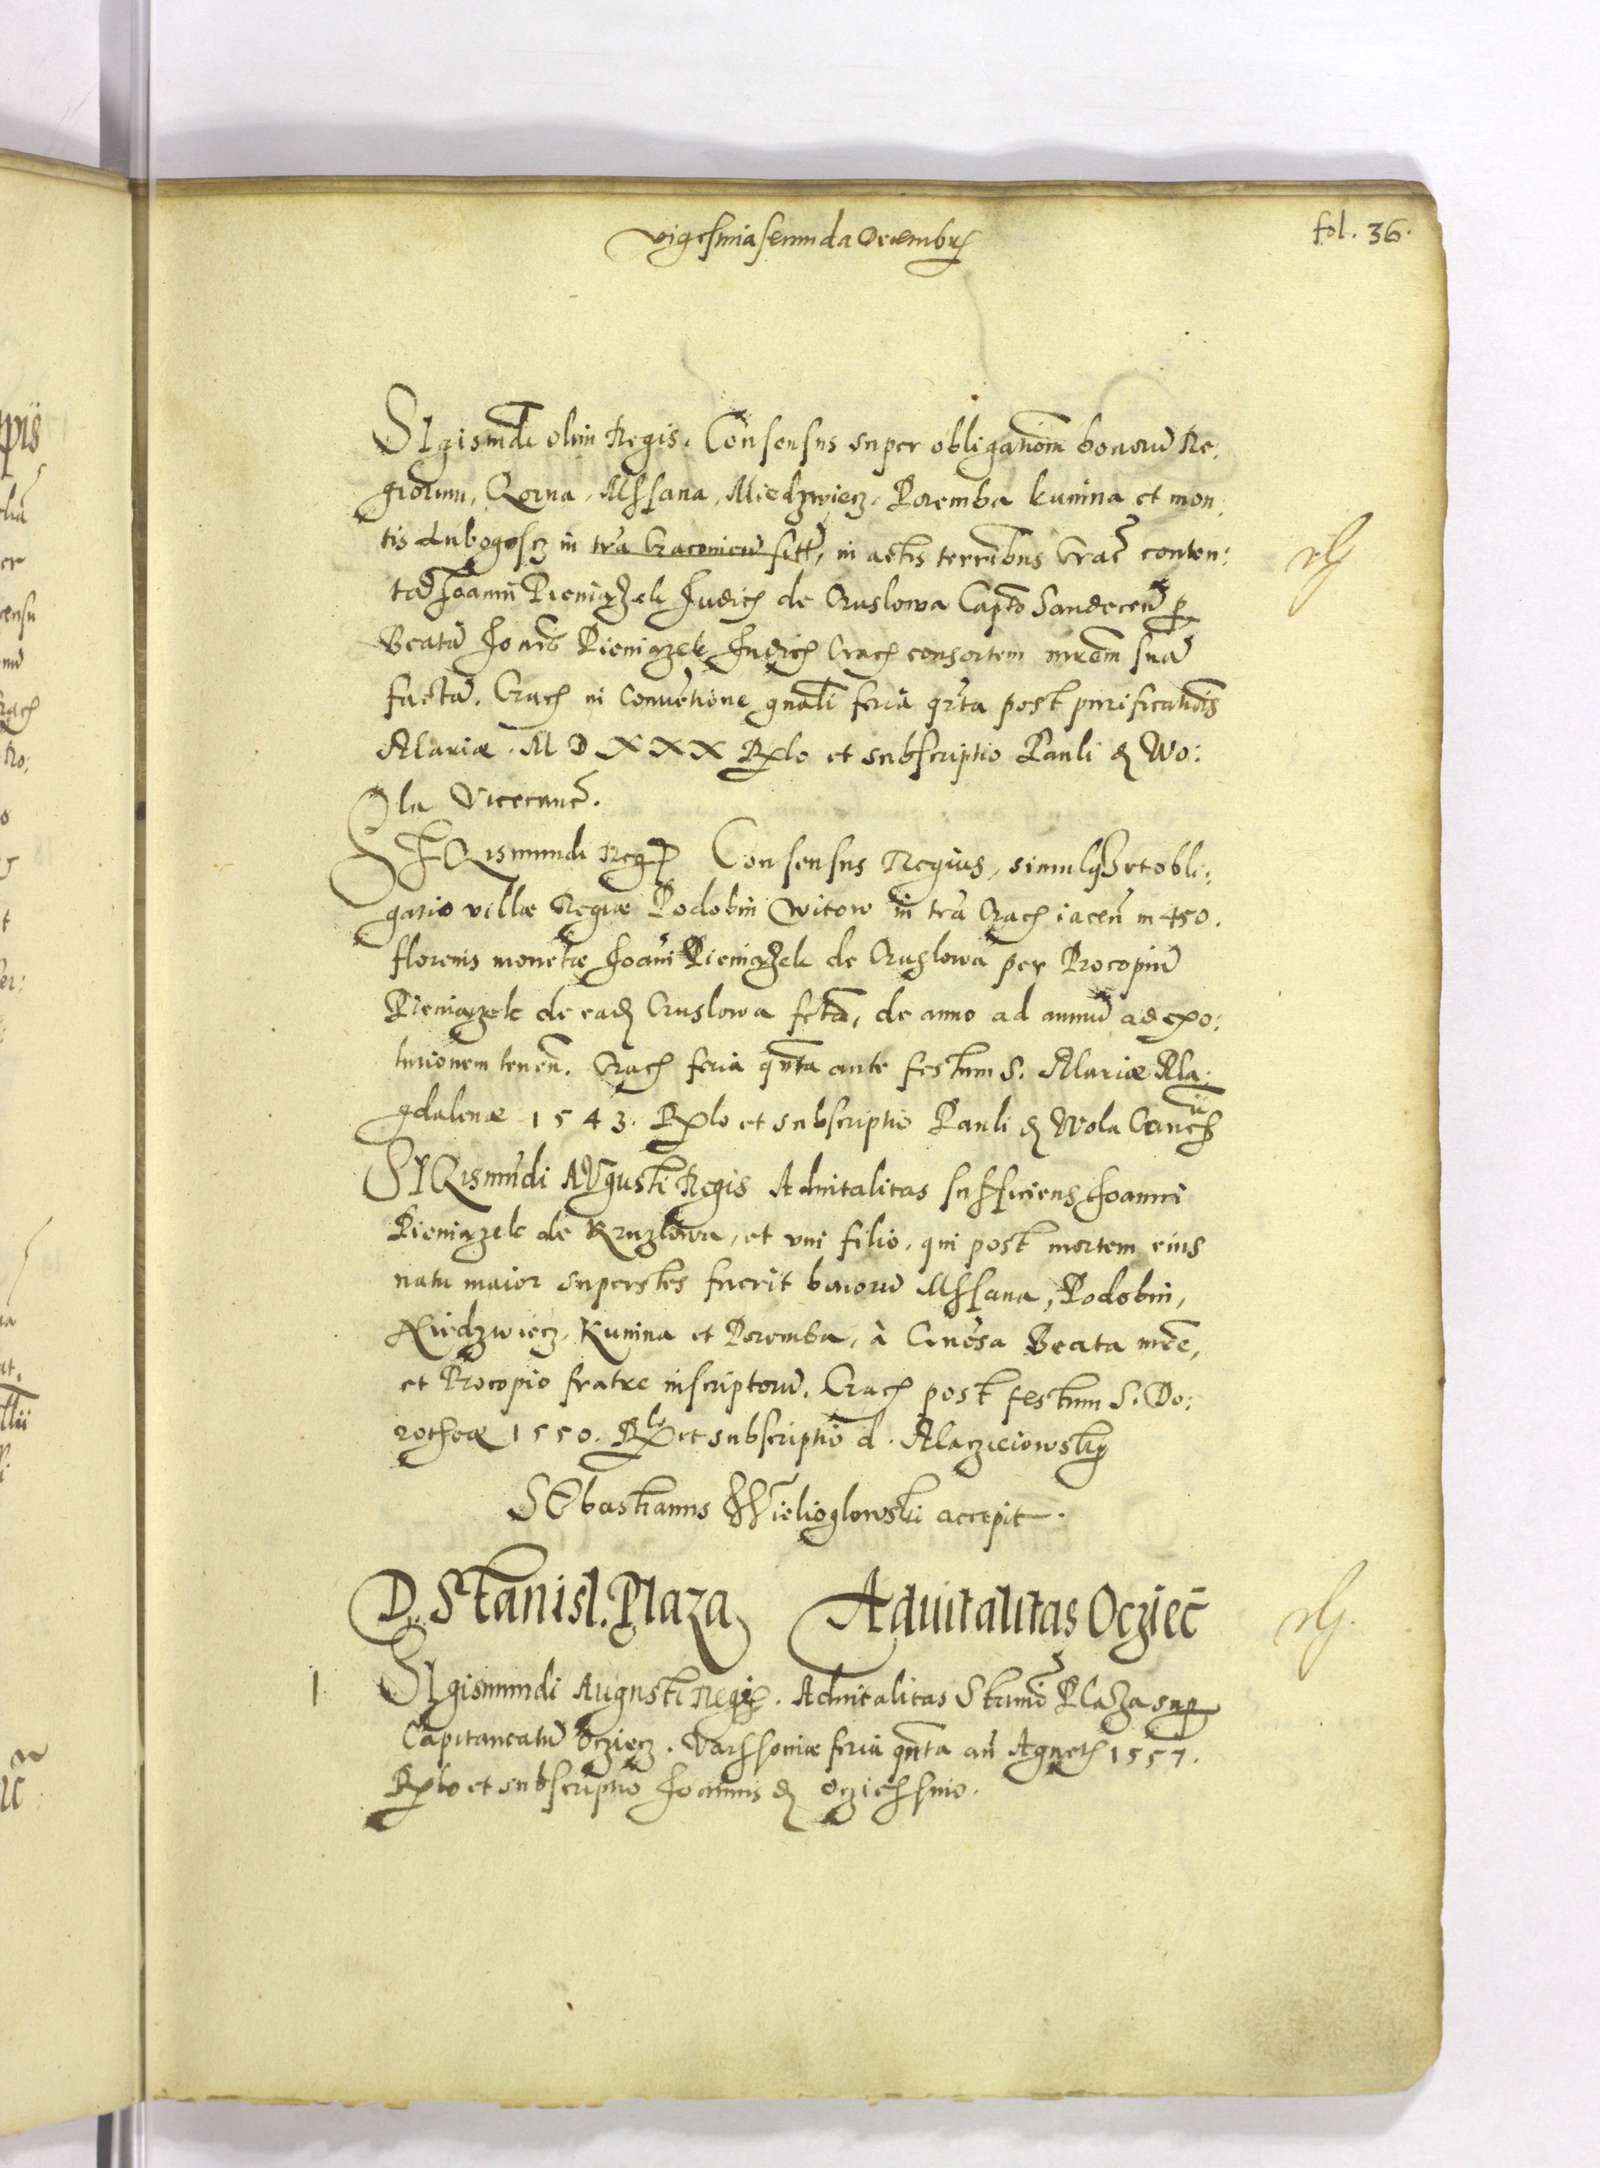 vigesima secunda Decembris
fol. 36.
SIgismdi olim Regis. Consensus super obligationem bonorū Re:
giorum, Qorna, Mssana, Miedzwiecz, Poremba kunina et mon:
tis Lubogoscz in tra Cracouien sitt, in actis terrribus Crac conten:
tā Joanni Pieniązek Judici de Cruslowa Capto Sandecen per
Beatā Joānis Pieniązek Judicis Crac consortem mrem suā
factā. Crac in Conuetione gnali feria qrta post purificationis
Mariæ. M D X X X Rlo et subscriptio Pauli de Wo:
la Vicecanc.
SIGismundi Regis Consensus Regius, simulq et obli:
gatio villæ Regiæ Podobin Witow in tra Crac iacen in 450.
florenis monetæ Joāni Pieniązek de Cruzlowa per Procopiū
Pieniązek de eadem Cruslowa fcta, de anno ad annū ad exo:
lutionem tenen. Crac feria qnta ante festum S. Mariæ Ma:
gdalenæ 1543. Rlo et subscriptio Pauli de Wola Cancrii
SIGismūdi AVgusti Regis Aduitalitas sufficiens Joanni
Pieniązek de Kruzlowa, et vni filio, qui post mortem eius
natu maior superstes fuerit bonorū Mssana, Podobin,
Niedzwiecz, Kunina et Poremba, à Conēsa Beata mre,
et Procopio fratre inscriptorū. Crac post festum S. Do:
rotheæ 1550. Rlo et subscriptio d. Maczieiowsky
SEbastianus Wielioglowski accepit.
D. Stanisl. Plaza Aduitalitas Ocziec
1 SIgismundi Augusti Regis. Aduitalitas Stanis Plaza super
Capitaneatū Ocziecz. Varssouiæ feria qnta an Agnetis 1557.
Rlo et subscriptio Joannis de Ocziessino.